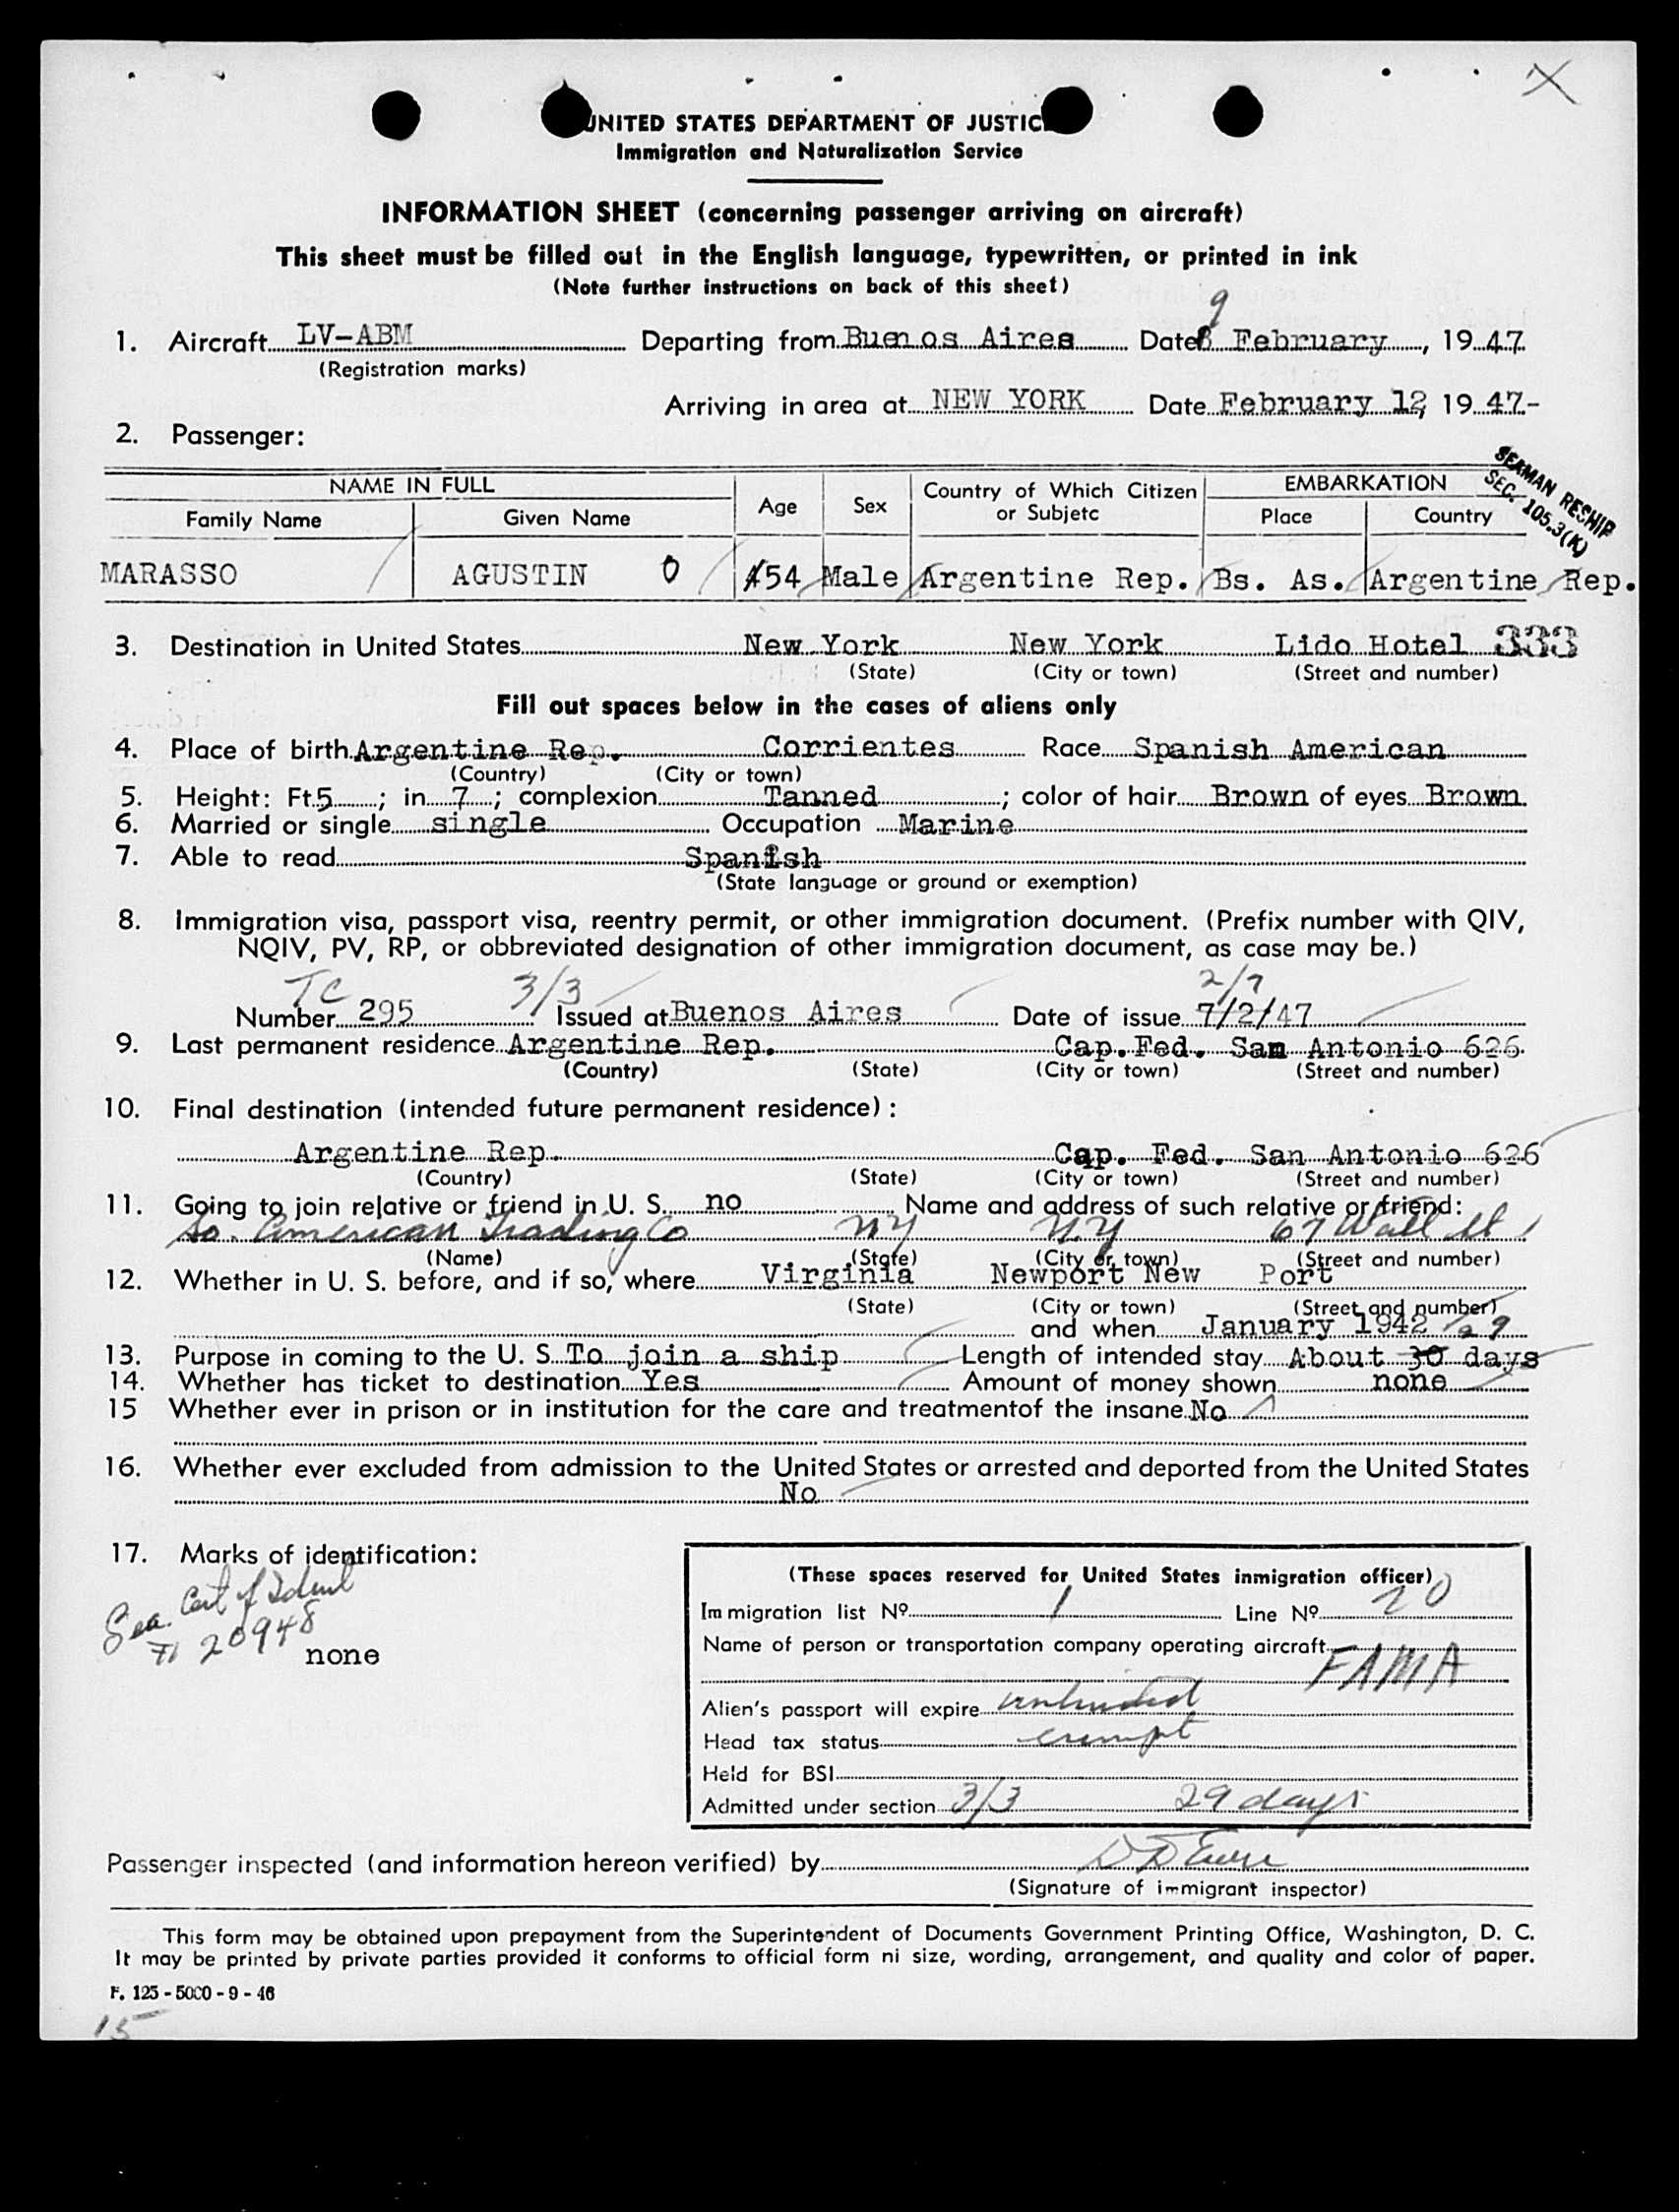 X
UNITED STATES DEPARTMENT OF JUSTIC
Immigration and Naturalization Service
INFORMATION SHEET (concerning passenger arriving on aircraft)
This sheet must be filled out in the English language, typewritten, or printed in ink
(Note further instructions on back of this sheet)
9
1. Aircraft LV-ABM Departing from Buenos Aires Date 8 February, 1947
(Registration marks)
Arriving in area at NEW YORK Date February 12, 1947-
2. Passenger:
SEAMAN RESHIP
SEC. 105.3(K)
NAME IN FULL Age Sex Country of Which Citizen or Subjetc EMBARKATION
Family Name Given Name Place Country
MARASSO AGUSTIN O 54 Male Argentine Rep. Bs. As. Argentine Rep.
3. Destination in United States New York New York Lido Hotel 333
(State) (City or town) (Street and number)
Fill out spaces below in the cases of aliens only
4. Place of birth Argentine Rep. Corrientes Race Spanish American
(Country) (City or town)
5. Height: Ft. 5; in 7; complexion Tanned; color of hair Brown of eyes Brown
6. Married or single single Occupation Marine
7. Able to read Spanish
(State language or ground or exemption)
8. Immigration visa, passport visa, reentry permit, or other immigration document. (Prefix number with QIV,
NQIV, PV, RP, or obbreviated designation of other immigration document, as case may be.)
TC 3/3 2/7
Number 295 Issued at Buenos Aires Date of issue 7/2/47
9. Last permanent residence Argentine Rep. Cap. Fed. San Antonio 626
(Country) (State) (City or town) (Street and number)
10. Final destination (intended future permanent residece):
Argentine Rep. Cap. Fed. San Antonio 626
(Country) (State) (City or town) (Street and number)
11. Going to join relative or friend in U. S. no Name and address of such relative or friend:
So. American Trading Co NY N.Y 67 Wall St
(Name) (State) (City or town) (Street and number)
12. Whether in U. S. before, and if so, where Virginia Newport New Port
(State) (City or town) (Street and number)
and when January 1942 29
13. Purpose in coming to the U. S. To join a ship Length of intended stay About 30 days
14. Whether has ticket to destination Yes Amount of money shown none
15 Whether ever in prison or in institution for the care and treatmentof the insane No
16. Whether ever excluded from admission to the United States or arrested and deported from the United States
No
17. Marks of identification:
Sea. Cert of Ident
20948
none
(These spaces reserved for United States inmigration officer)
Immigration list Nº 1 Line Nº 20
Name of person or transportation company operating aircraft
FAMA
Alien's passport will expire unlimited
Head tax status exempt
Held for BSI
Admitted under section 3/3 29 days
Passenger inspected (and information hereon verified) by
(Signature of immigrant inspector)
This form may be obtained upon prepayment from the Superintendent of Documents Government Printing Office, Washington, D. C.
It may be printed by private parties provided it conforms to official form ni size, wording, arrangement, and quality and color of paper.
F. 125 - 5000 - 9 - 46
15